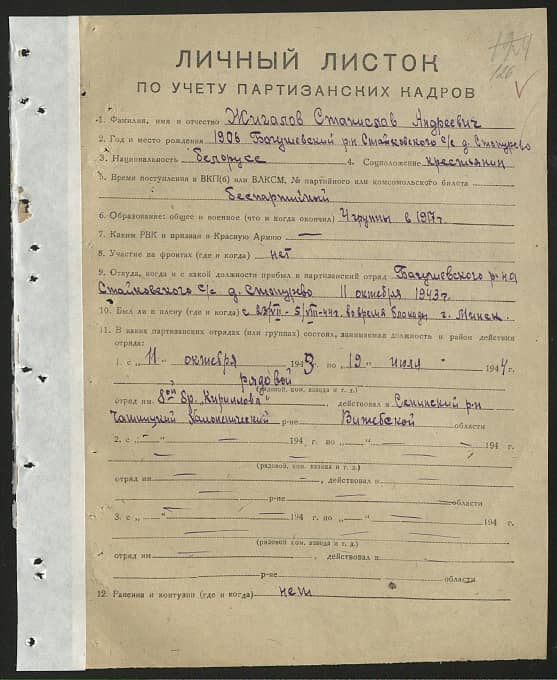 126
ЛИЧНЫЙ ЛИСТОК
ПО УЧЕТУ ПАРТИЗАНСКИХ КАДРОВ
1. Фамилия, имя и отчество Жигалов Станислав Андреевич
2. Год и место рождения 1906 Богушевский р-н Стайковского с/с д. Стопурево
3. Национальность белорусс 4. Соцположение крестьянин
5. Время поступления в ВКП(б) или ВЛКСМ, № партийного или комсомольского билета
беспартийный
6. Образование: общее и военное (что и когда окончил) 4 группы в 1917 г.
7. Каким РВК и призван в Красную Армию —
8. Участие на фронтах (где и когда) нет
9. Откуда, когда и с какой должности прибыл в партизанский отряд Богушевского р-на
Стайковского с/с д. Стопурево 11 октября 1943 г.
10. Был ли в плену (где и когда) с - 5/VII-44 г. во время блокады г. Минск.
11. В каких партизанских отрядах (или группах) состоял, занимаемая должность и район действия
отряда:
1. с „11“ октября 1943 г. по „12“ июля 1944 г.
рядовой
(рядовой, ком. взвода и т. д.)
отряд им. 8ой бр. „Кириллова“, действовал в Сенинский р-н
Чашницкий р-не Витебской области
2. с „—“ — 194 г. по „—“ — 194 г.
(рядовой, ком. взвода и т. д.)
отряд им. —, действовал в —
— р-не — области
3. с „—“ — 194 г. по „—“ — 194 г.
(рядовой, ком. взвода и т. д.)
отряд им. —, действовал в —
— р-не — области
12. Ранения и контузии (где и когда) нет